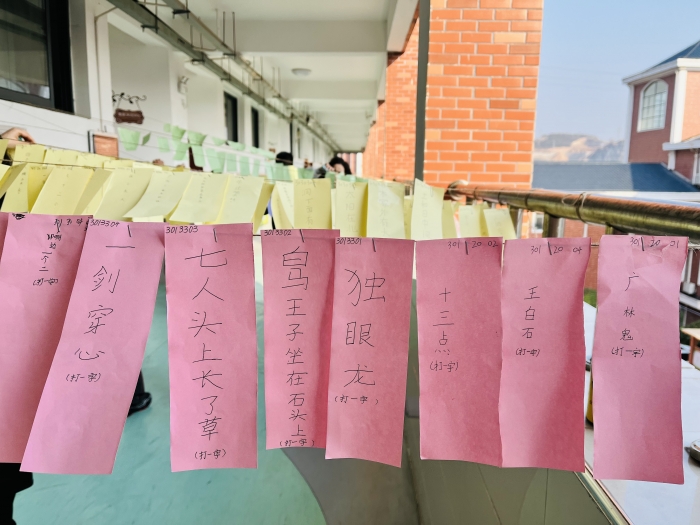 一个二
(打一字)
3013304
一剑穿心
(打一字)
3013303
七人头上长了草
(打一字)
3013302
白马王子坐在石头上
(打一字)
3013301
独眼龙
(打一字)
301 20 02
十三点
(打一字)
301 20 04
王白石
(打一字)
301 20 01
广林鬼
(打一字)